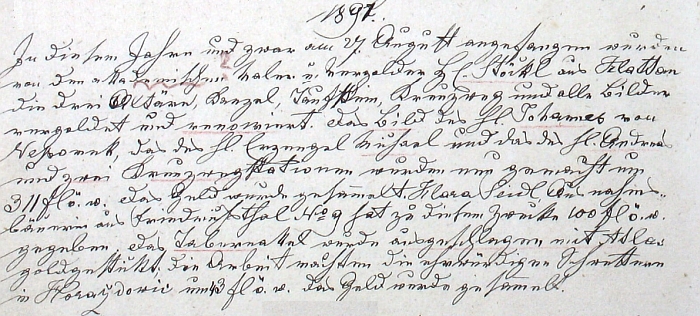 1897.
In diesem Jahre und zwar am 27. August angefangen wurden
von den akademischen Maler u. Vergolder H. Stöckl aus Klattau
die drei Altäre, Kanzel, Taufstein, Kreuzweg und alle Bilder
vergoldet und renoviert. Das Bild des hl. Johannes von
Nepomuk, das des hl. Erzengel Michael und das des hl. Andreas
und zwei Kreuzwegstationen wurden neu gemacht um
311 fl ö. w. Das Geld wurde gesammelt. Klara Seidl Ausnahms-
bäuerin aus Friedrichsthal No 9 hat zu diesem Zwecke 100 fl ö. w.
gegeben. Das Tabernakel wurde ausgeschlagen mit Atlas
goldgestickt. Die Arbeit machten die ehrwürdigen Schwestern
in Horaždovic um 43 fl ö. w. Das Geld wurde gesammelt.